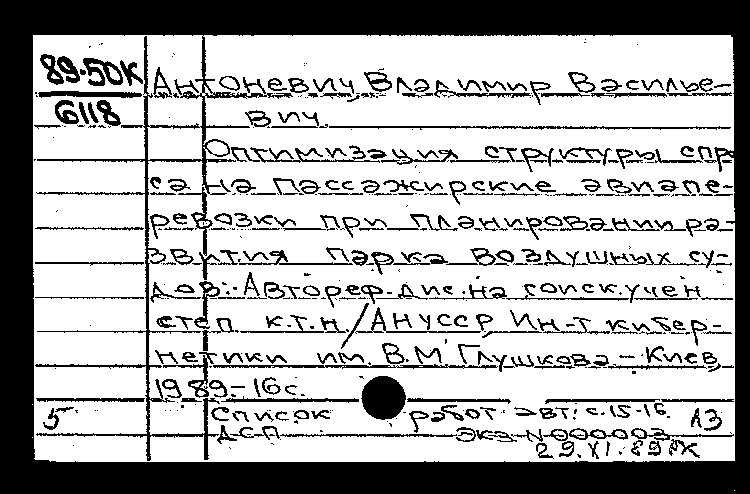 89-50К
6118
Антоневич, Владимир Василье-
вич.
Оптимизация структуры спро
са на пассажирские авиапе-
ревозки при планировании ра-
звития парка воздушных су-
дов: Автореф. дис. на соиск. учен
степ к.т.н. / АН УССР Ин-т кибер-
нетики им. В.М. Глушкова - Киев,
1989. - 16 с.
5 Список работ авт: с. 15-16. АЗ
ДСП экз N 000003
29.XI.89